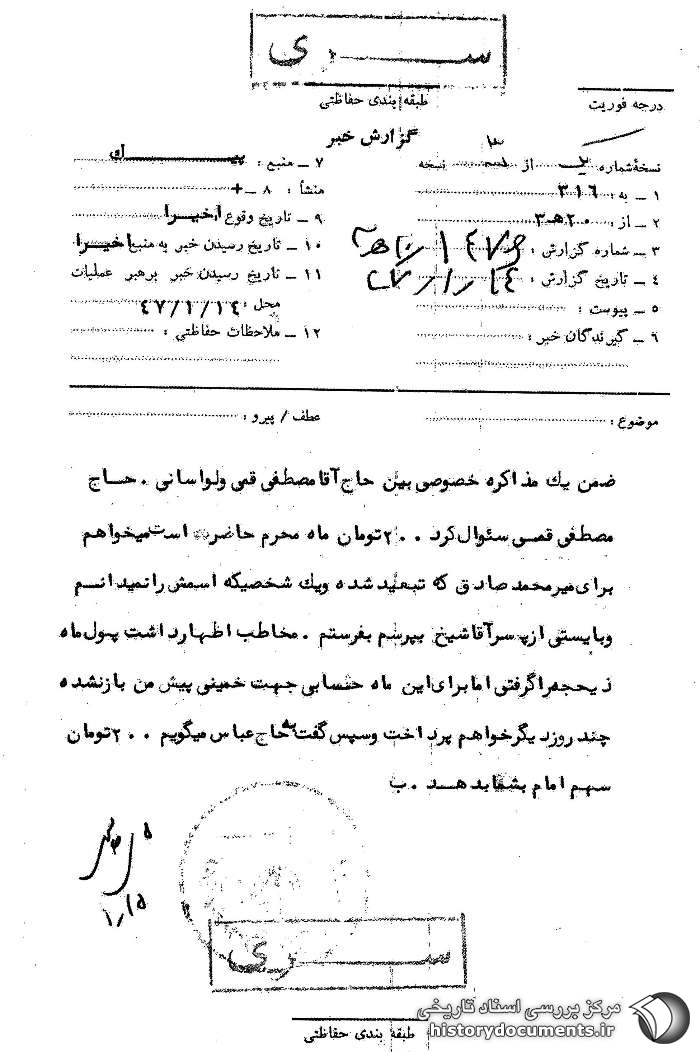 سری
طبقه بندی حفاظتی
درجه فوریت
گزارش خبر
نسخه شماره از نسخه
۱ ـ به: ۳۱۶
۲ ـ از: ۲۰ ه‍ ۳
۳ ـ شماره گزارش:
۴ ـ تاریخ گزارش: ۴۷/۱/۱۴
۵ ـ پیوست:
۶ ـ گیرندگان خبر:
۷ ـ منبع: یک
۸ ـ منشأ: +
۹ ـ تاریخ وقوع اخیرا
۱۰ ـ تاریخ رسیدن خبر به منبع اخیرا
۱۱ ـ تاریخ رسیدن خبر برهبر عملیات
محل: ۴۷/۱/۱۴
۱۲ ـ ملاحظات حفاظتی:
موضوع:
عطف / پیرو:
ضمن یك مذاکره خصوصی بین حاج آقا مصطفی قمی ولواسانی . حاج
مصطفی قمی سئوال کرد ۲۰۰ تومان ماه محرم حاضر است میخواهم
برای میرمحمد صادق که تبعید شده ویك شخصیکه اسمش رانمیدانم
وبایستی ازپسرآقاشیخ بپرسم بفرستم . مخاطب اظهارداشت پول ماه
ذیحجه راگرفتی اما برای این ماه حسابی جهت خمینی پیش من بازنشده
چند روزدیگرخواهم پرداخت وسپس گفت به حاج عباس میگویم ۲۰۰ تومان
سهم امام بشما بدهد . ب
۱/۱۵
سری
طبقه بندی حفاظتی
مرکز بررسی اسناد تاریخی
historydocuments.ir